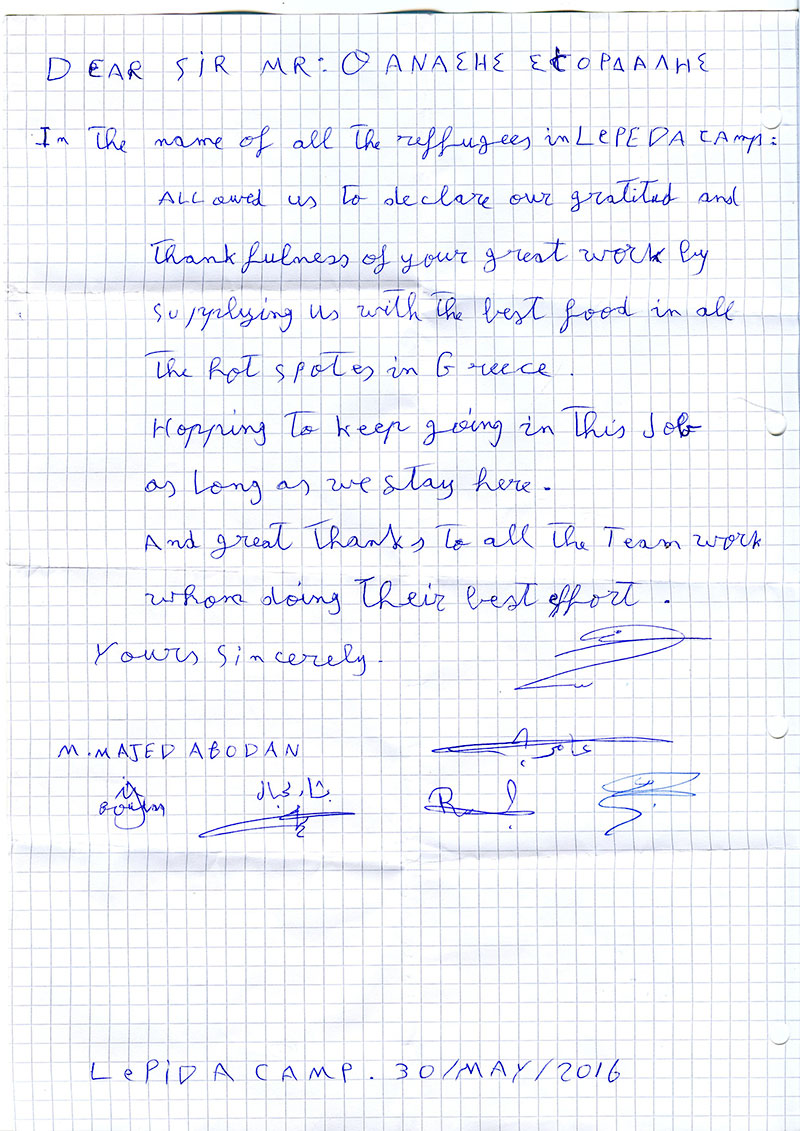 DEAR SIR MR: ΘΑΝΑΣΗΣ ΣΚΟΡΔΑΛΗΣ
In The name of all The reffugees in LePEDA CAmp:
ALL owed us To declare our gratitud and
Thankfulness of your great work by
supplying us with The best food in all
The hot spotes in Greece.
Hopping To keep going in This Job
as Long as we stay here.
And great Thanks To all The Team work
whom doing Their best effort.
Yours Sincerely.
M. MAJED ABODAN
LePiDA CAMP. 30/MAY/2016